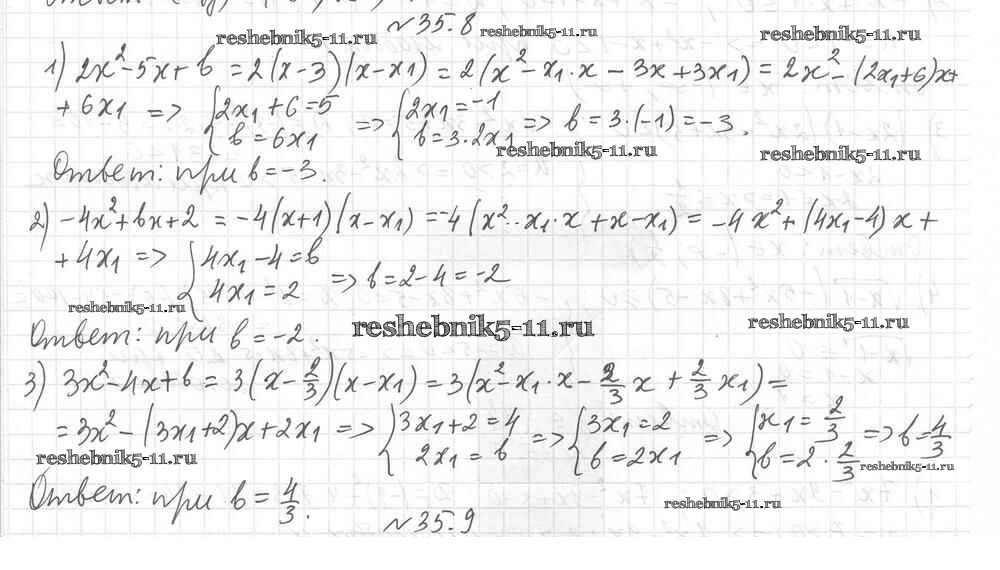 №35.8
reshebnik5-11.ru reshebnik5-11.ru reshebnik5-11.ru
1) 2x²-5x+b = 2(x-3)(x-x1) = 2(x²-x1·x-3x+3x1) = 2x²-(2x1+6)x+
+6x1 => {2x1+6=5 b=6x1 => {2x1=-1 b=3·2x1 => b=3·(-1)=-3.
reshebnik5-11.ru reshebnik5-11.ru
Ответ: при b=-3.
2) -4x²+bx+2 = -4(x+1)(x-x1) = -4(x²-x1·x+x-x1) = -4x²+(4x1-4)x+
+4x1 => {4x1-4=b 4x1=2 => b=2-4=-2
reshebnik5-11.ru reshebnik5-11.ru reshebnik5-11.ru
Ответ: при b=-2.
3) 3x²-4x+b = 3(x-2/3)(x-x1) = 3(x²-x1·x-2/3x+2/3x1) =
=3x²-(3x1+2)x+2x1 => {3x1+2=4 2x1=b => {3x1=2 b=2x1 => {x1=2/3 b=2·2/3 => b=4/3
reshebnik5-11.ru reshebnik5-11.ru
Ответ: при b=4/3.
reshebnik5-11.ru
№35.9